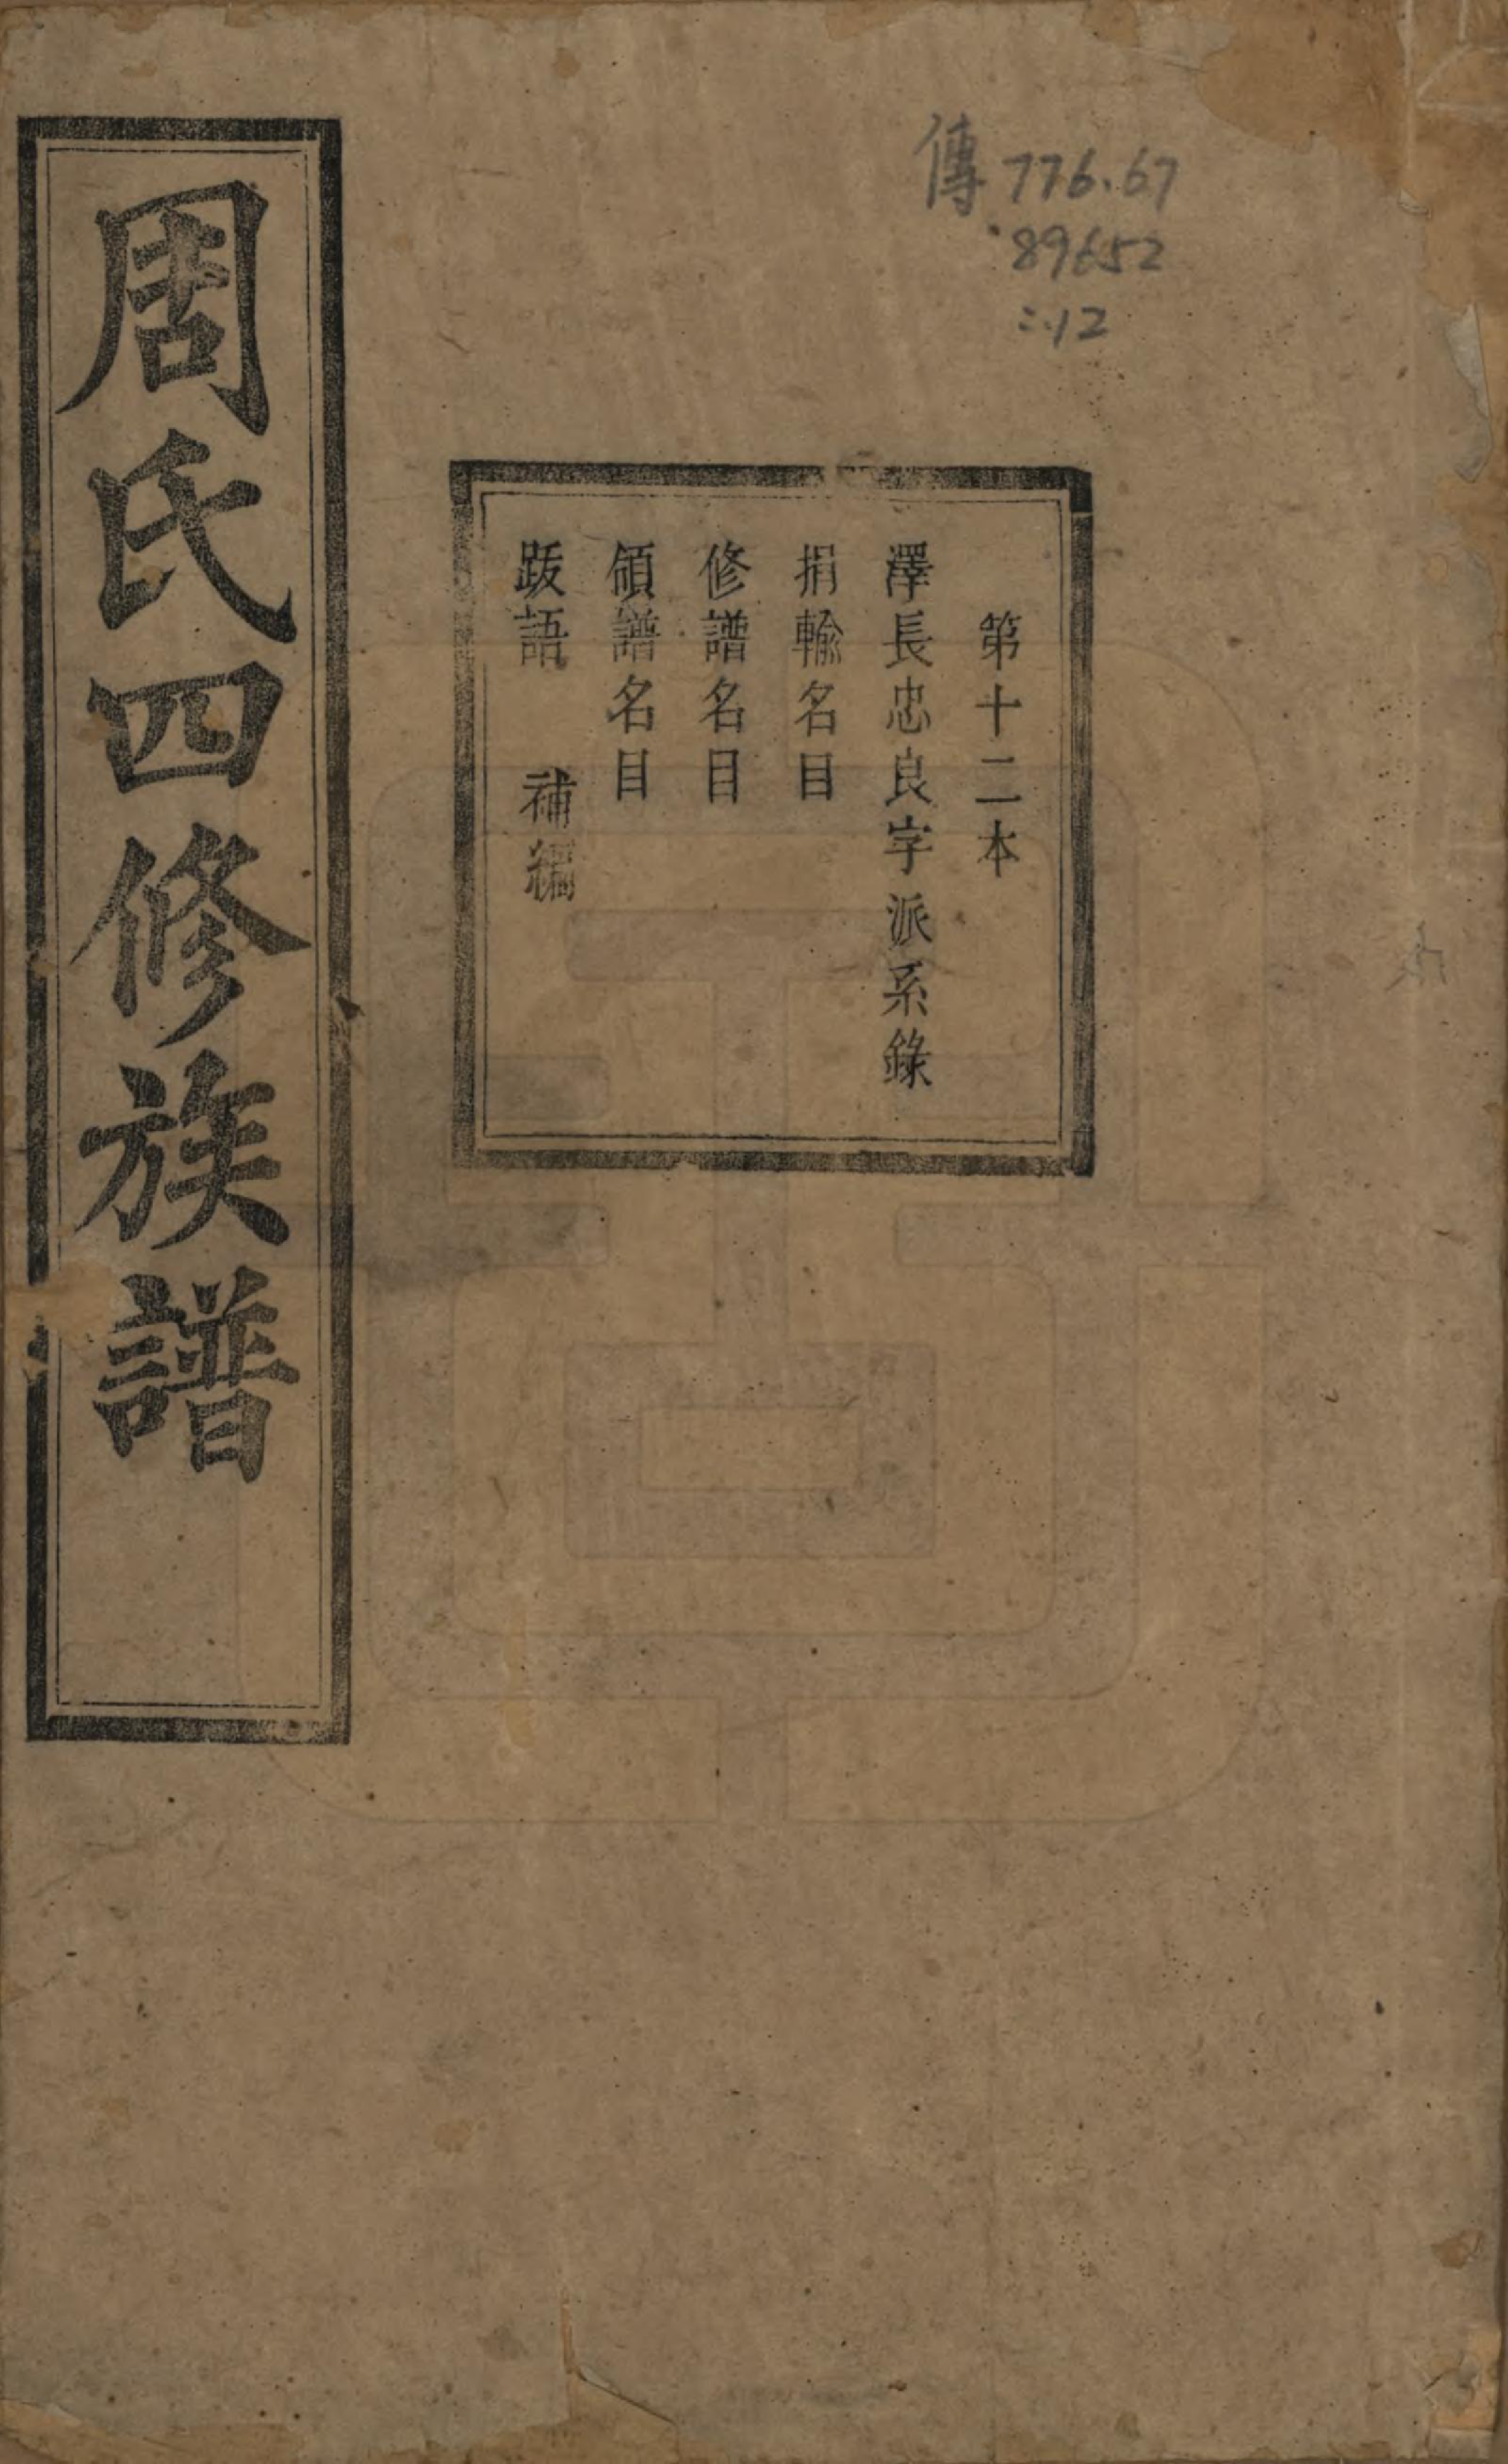 傳 776.67
89652
:.12
第十二本
澤長忠良字派系錄
捐輸名目
修譜名目
領譜名目
跋語 補編
周氏四修族譜